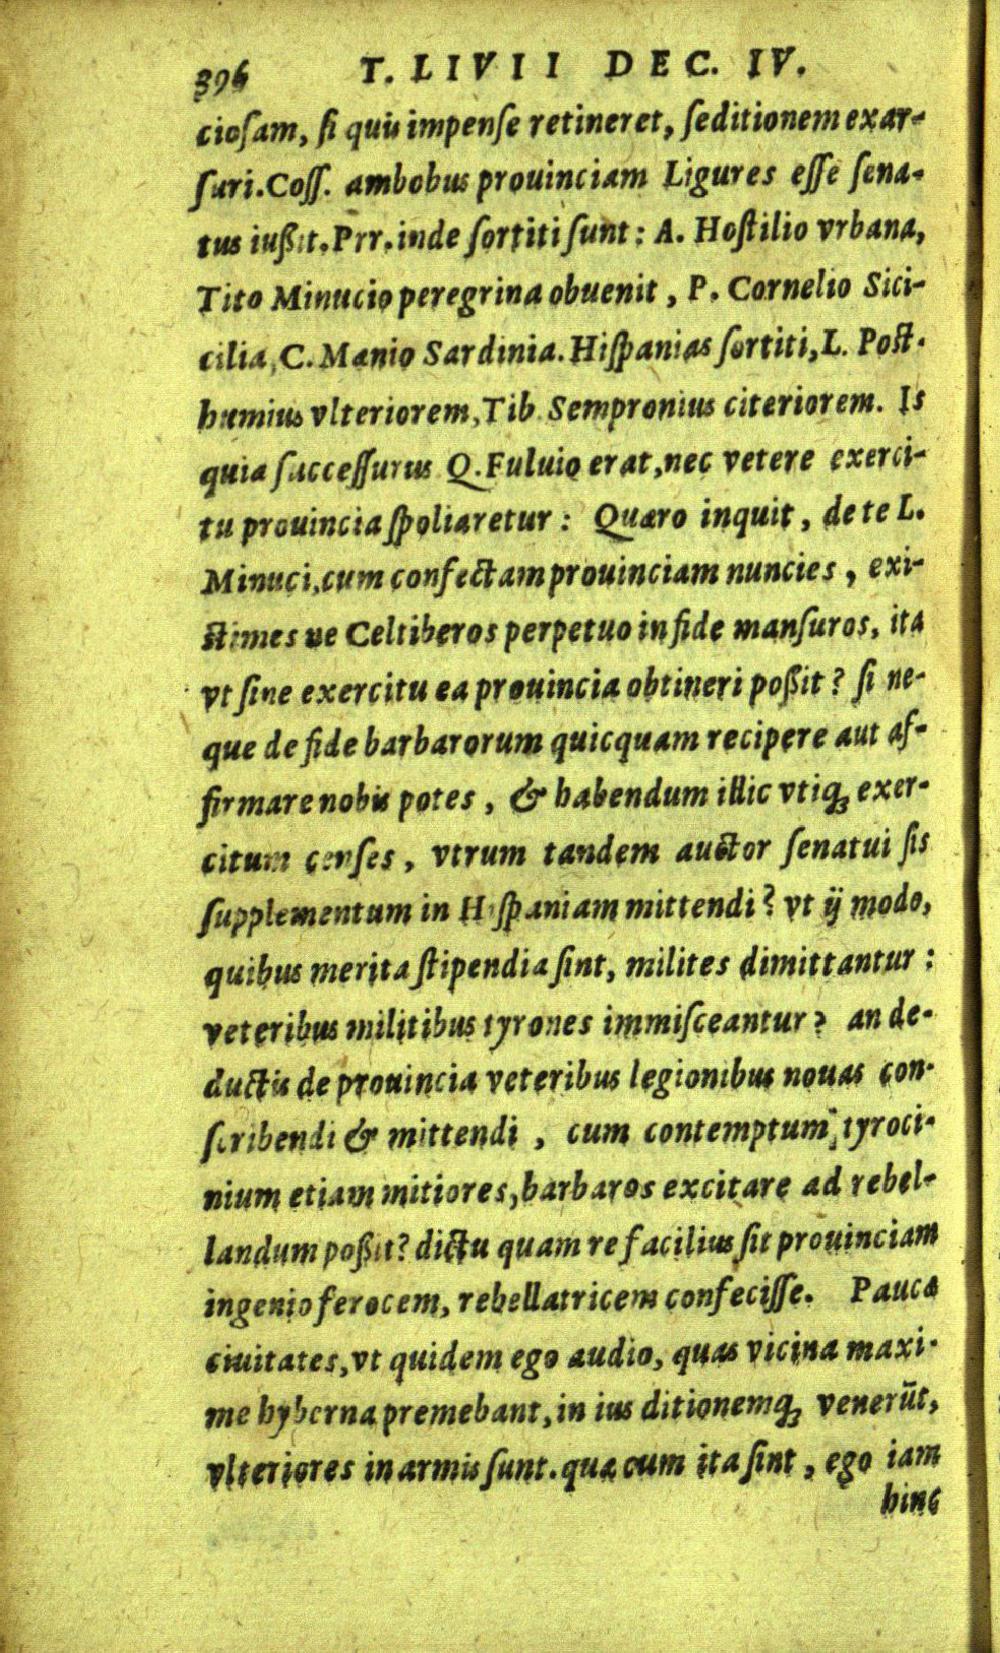 396 T. LIVII DEC. IV.
ciosam, si quis impense retineret, seditionem exar-
suri. Coss. ambobus prouinciam Ligures esse sena-
tus iußit. Prr. inde sortiti sunt: A. Hostilio vrbana,
Tito Minucio peregrina obuenit, P. Cornelio Sici-
cilia, C. Manio Sardinia. Hispanias sortiti, L. Post-
humius vlteriorem, Tib. Sempronius citeriorem. Is
quia successurus Q. Fuluio erat, nec vetere exerci-
tu prouincia spoliaretur: Quæro inquit, de te L.
Minuci, cum confectam prouinciam nuncies, exi-
stimes ne Celtiberos perpetuo in fide mansuros, ita
vt sine exercitu ea prouincia obtineri poßit? si ne-
que de fide barbarorum quicquam recipere aut af-
firmare nobis potes, & habendum illic vtiq; exer-
citum censes, vtrum tandem auctor senatui sis
supplementum in Hispaniam mittendi? vt ij modo,
quibus merita stipendia sint, milites dimittantur:
veteribus militibus tyrones immisceantur? an de-
ductis de prouincia veteribus legionibus nouas con-
scribendi & mittendi, cum contemptum tyroci-
nium etiam mitiores, barbaros excitare ad rebel-
landum poßit? dictu quam re facilius sit prouinciam
ingenio ferocem, rebellatricem confecisse. Paucæ
ciuitates, vt quidem ego audio, quas vicina maxi-
me hyberna premebant, in ius ditionemq; venerūt,
vlteriores in armis sunt. quæ cum ita sint, ego iam
hinc